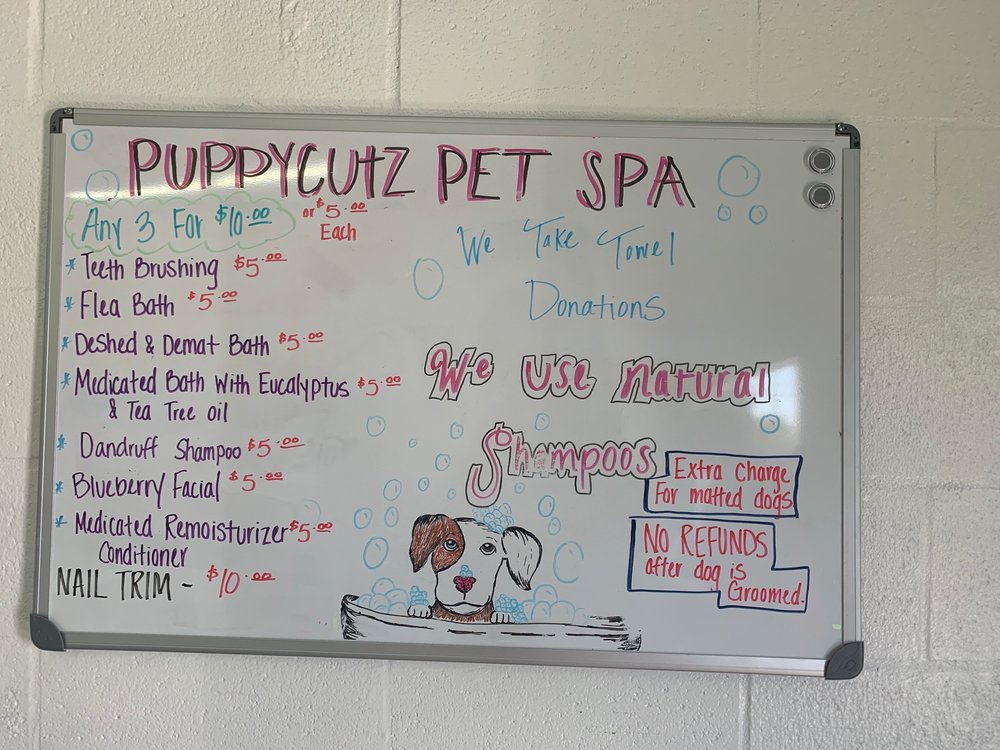 PUPPYCUTZ PET SPA
Any 3 For $10.00 or $5.00
Each
* Teeth Brushing $5.00
* Flea Bath $5.00
* Deshed & Demat Bath $5.00
* Medicated Bath With Eucalyptus $5.00
& Tea Tree oil
* Dandruff Shampoo $5.00
* Blueberry Facial $5.00
* Medicated Remoisturizer $5.00
Conditioner
NAIL TRIM - $10.00
We Take Towel
Donations
We use natural
Shampoos
Extra Charge
For matted dogs
NO REFUNDS
after dog is
Groomed.